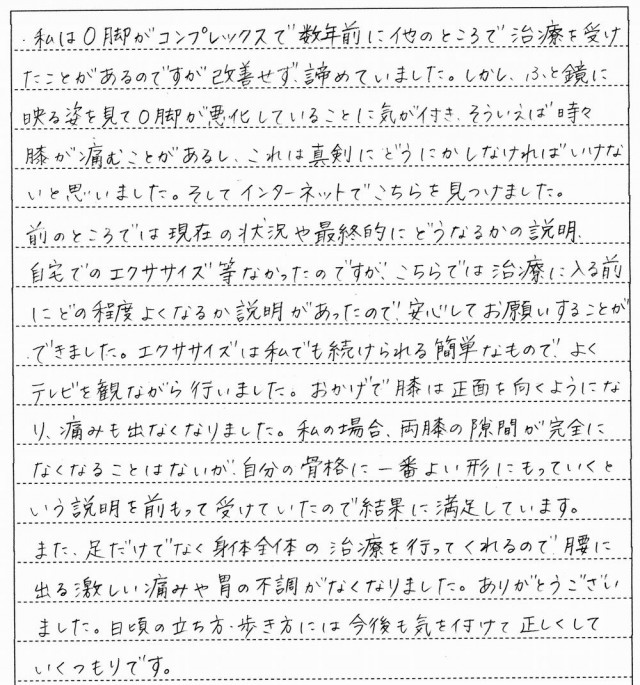 ・私はO脚がコンプレックスで数年前に他のところで治療を受け
たことがあるのですが改善せず、諦めていました。しかし、ふと鏡に
映る姿を見てO脚が悪化していることに気が付き、そういえば時々
膝が痛むことがあるし、これは真剣にどうにかしなければいけな
いと思いました。そしてインターネットでこちらを見つけました。
前のところでは現在の状況や最終的にどうなるかの説明、
自宅でのエクササイズ等なかったのですが、こちらでは治療に入る前
にどの程度よくなるか説明があったので、安心してお願いすることが
できました。エクササイズは私でも続けられる簡単なもので、よく
テレビを観ながら行いました。おかげで膝は正面を向くようにな
り、痛みも出なくなりました。私の場合、両膝の隙間が完全に
なくなることはないが、自分の骨格に一番よい形にもっていくと
いう説明を前もって受けていたので結果に満足しています。
また、足だけでなく身体全体の治療を行ってくれるので、腰に
出る激しい痛みや胃の不調がなくなりました。ありがとうござい
ました。日頃の立ち方・歩き方には今後も気を付けて正しくして
いくつもりです。